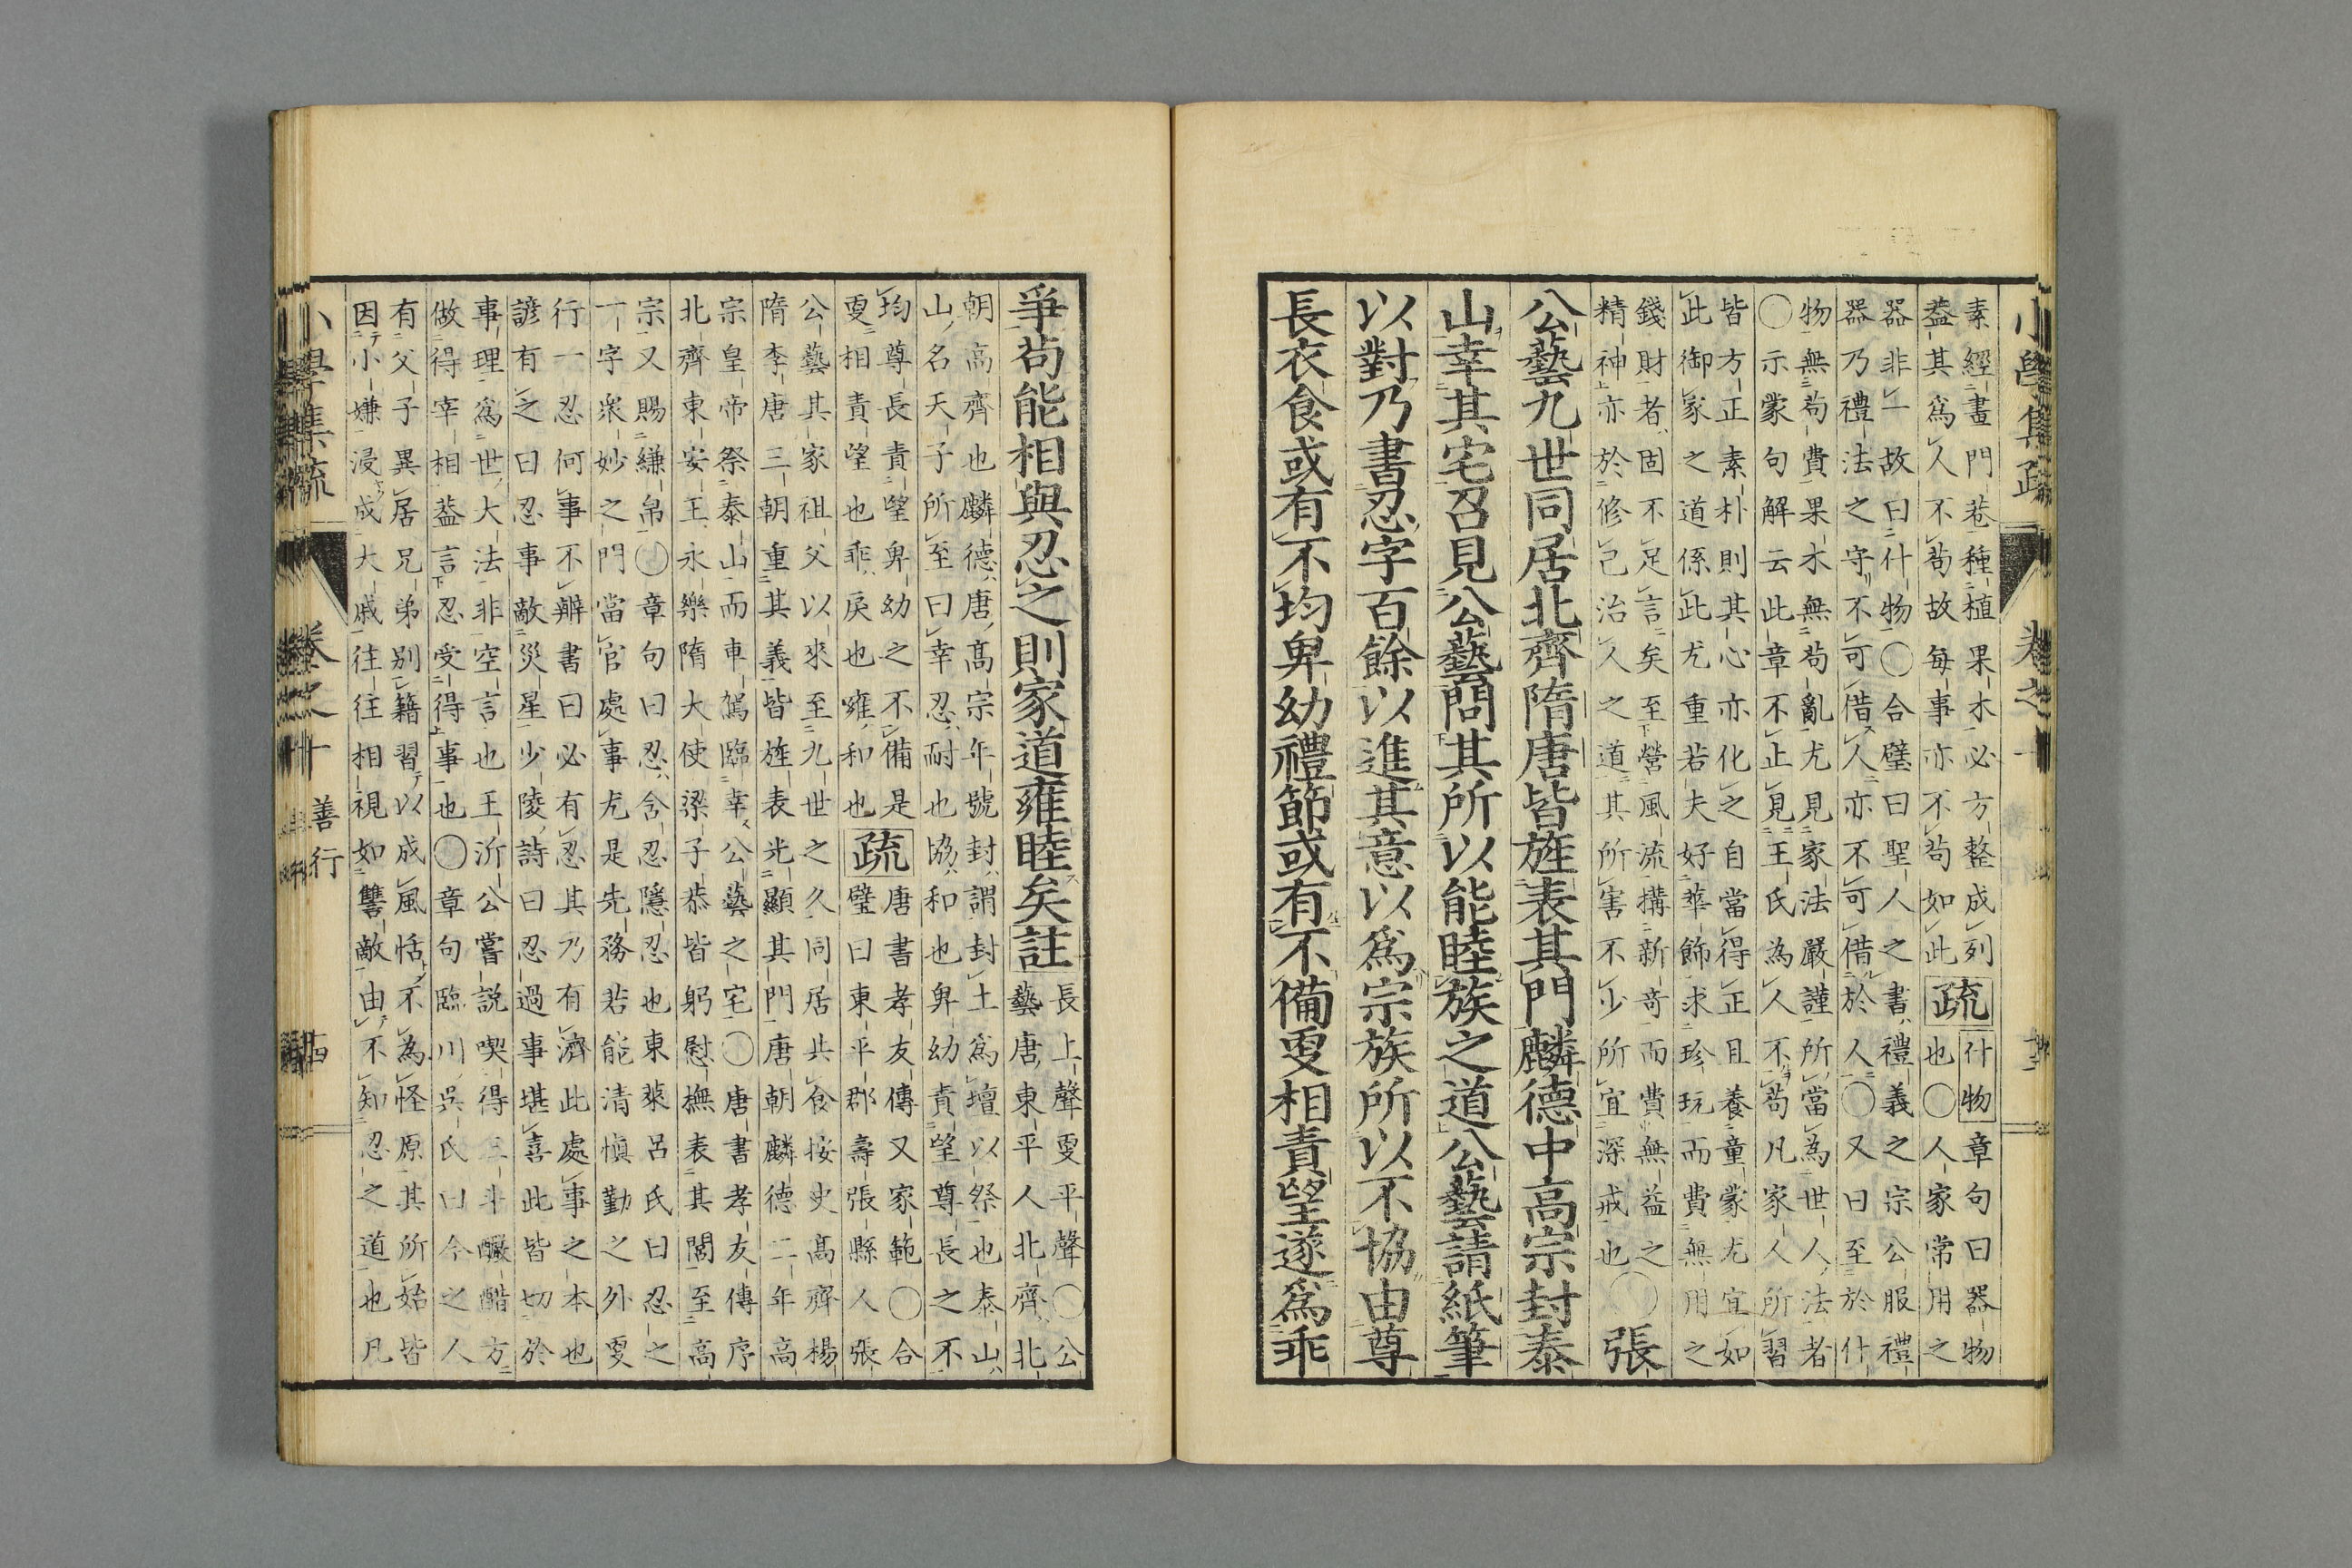 小學集疏 卷之十
素經畫門巷種植果木必方整成列
葢其爲人不苟故每事亦不苟如此疏什物章句曰器物
也○人家常用之
器非一故曰什物○合璧曰聖人之書禮義之宗公服禮
器乃禮法之守不可借人亦不可借於人○又曰至於什
物無苟費果木無苟亂尤見家法嚴謹所當為世人法者
○示蒙句解云此章不止見王氏為人不苟凡家人所習
皆方正素朴則其心亦化之自當得正且養童蒙尤宜如
此御家之道係此尤重若夫好華飾求珍玩而費無用之
錢財者固不足言矣至營風流構新奇而費無益之
精神亦於修己治人之道其所害不少所宜深戒也○
張
公藝九世同居北齊隋唐皆旌表其門麟德中高宗封泰
山幸其宅召見公藝問其所以能睦族之道公藝請紙筆
以對乃書忍字百餘以進其意以爲宗族所以不協由尊
長衣食或有不均卑幼禮節或有不備更相責望遂爲乖
爭苟能相與忍之則家道雍睦矣註
長上聲更平聲○公
藝唐東平人北齊北
朝高齊也麟德唐高宗年號封謂封土爲壇以祭也泰山
山名天子所至曰幸忍耐也協和也卑幼責望尊長之不
均尊長責望卑幼之不備是
更相責望也乖戾也雍和也
疏
唐書孝友傳又家範○合
璧曰東平郡壽張縣人張
公藝其家祖父以來至九世之久同居共食按史高齊楊
隋李唐三朝重其義皆旌表光顯其門唐朝麟德二年高
宗皇帝祭泰山而車駕臨幸公藝之宅○唐書孝友傳序
北齊東安王永樂隋大使梁子恭皆躬慰撫表其閭至高
宗又賜縑帛○章句曰忍含忍隱忍也東萊呂氏曰忍之
一字衆妙之門當官處事尤是先務若能清愼勤之外更
行一忍何事不辨書曰必有忍其乃有濟此處事之本也
諺有之曰忍事敵災星少陵詩曰忍過事堪喜此皆切於
事理爲世大法非空言也王沂公嘗說喫得三斗釅醋方
做得宰相葢言忍受得事也○章句臨川吳氏曰今之人
有父子異居兄弟别籍習以成風恬不為怪原其所始皆
因小嫌浸成大戚往往相視如讐敵由不知忍之道也凡
小學集疏 卷之十 善行 十四